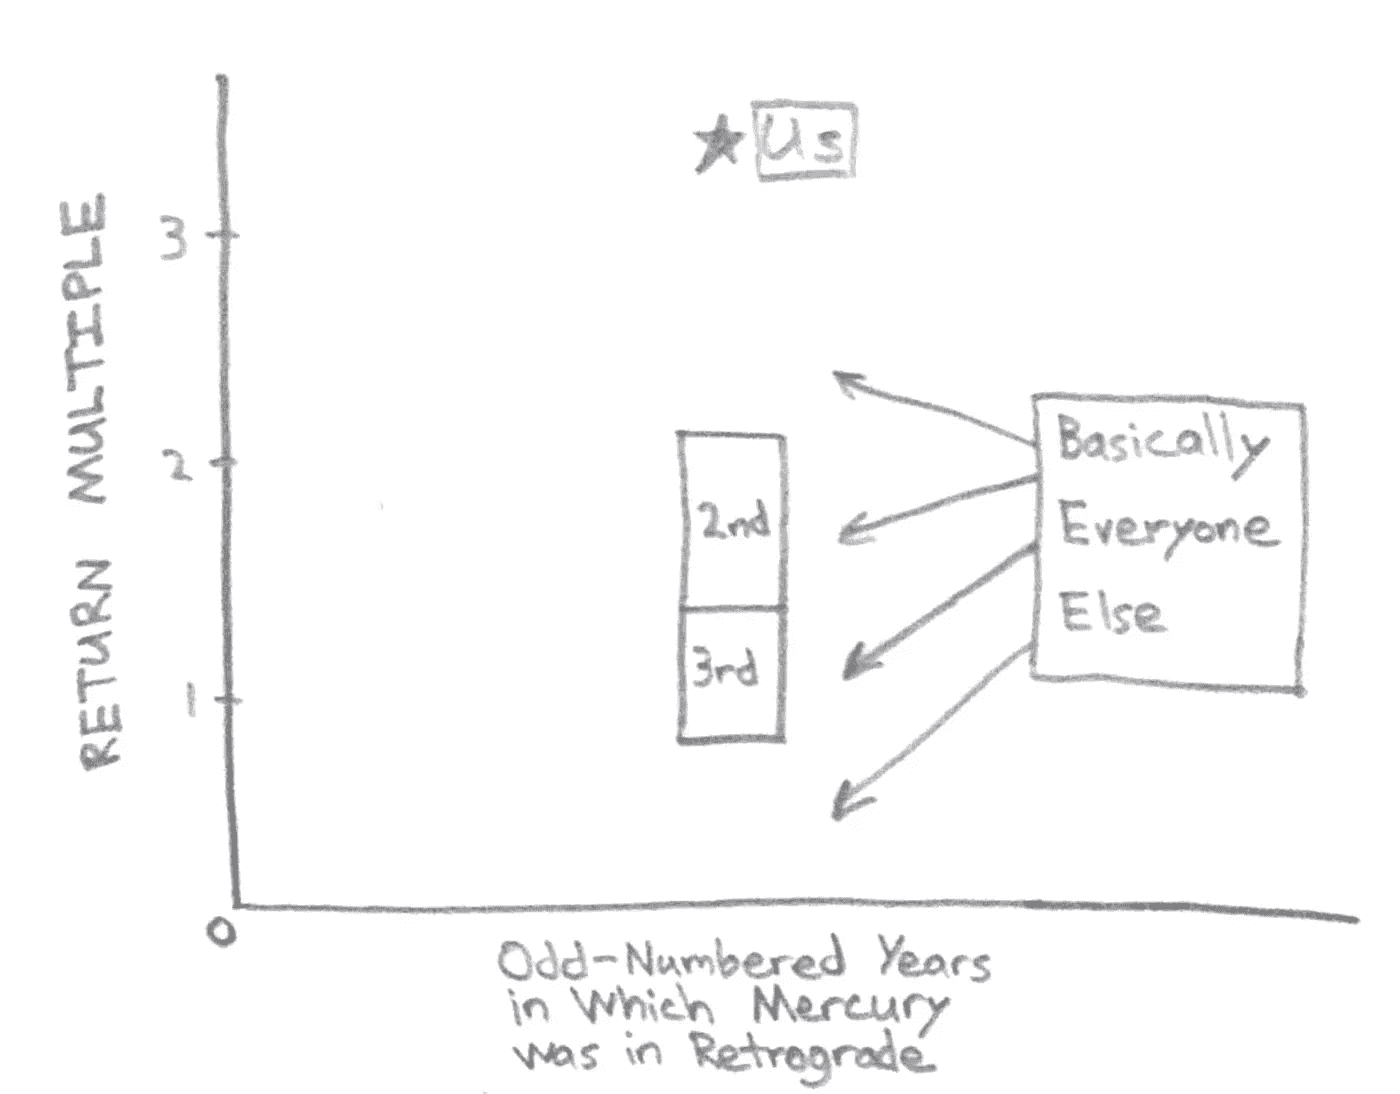 RETURN MULTIPLE
3
2
1
0
Us
2nd
3rd
Basically
Everyone
Else
Odd-Numbered Years
in Which Mercury
was in Retrograde